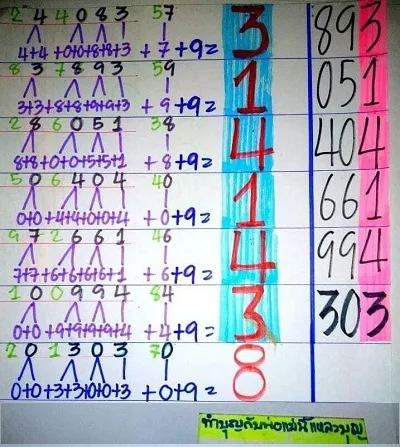 2 4 4 0 8 3 57
4+4+0+0+8+8+3 +7+9= 3 893
8 3 7 8 9 3 59
3+3+8+8+9+9+3 +9+9= 1 051
2 8 6 0 5 1 38
8+8+0+0+5+5+1 +8+9= 4 404
5 0 6 4 0 4 40
0+0+4+4+0+0+4 +0+9= 1 661
9 7 2 6 6 1 46
7+7+6+6+6+6+1 +6+9= 4 994
1 0 0 9 9 4 84
0+0+9+9+9+9+4 +4+9= 3 303
2 0 1 3 0 3 70
0+0+3+3+0+0+3 +0+9= 8
ทำบุญกับพ่อแม่นี่แหละบุญ